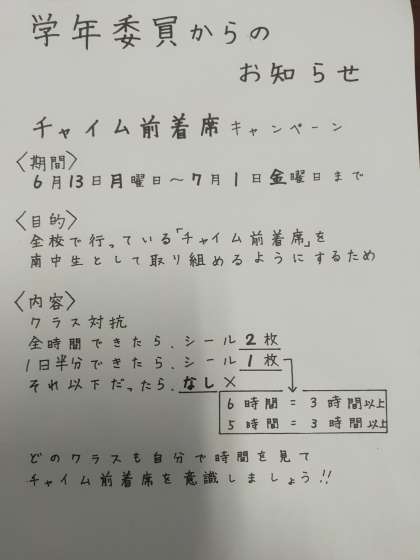 学年委員からの
お知らせ
チャイム前着席キャンペーン
〈期間〉
6月13日月曜日～7月1日金曜日まで
〈目的〉
全校で行っている「チャイム前着席」を
南中生として取り組めるようにするため
〈内容〉
クラス対抗
全時間できたら、シール2枚
1日半分できたら、シール1枚
それ以下だったら、なし×
6時間=3時間以上
5時間=3時間以上
どのクラスも自分で時間を見て
チャイム前着席を意識しましょう!!